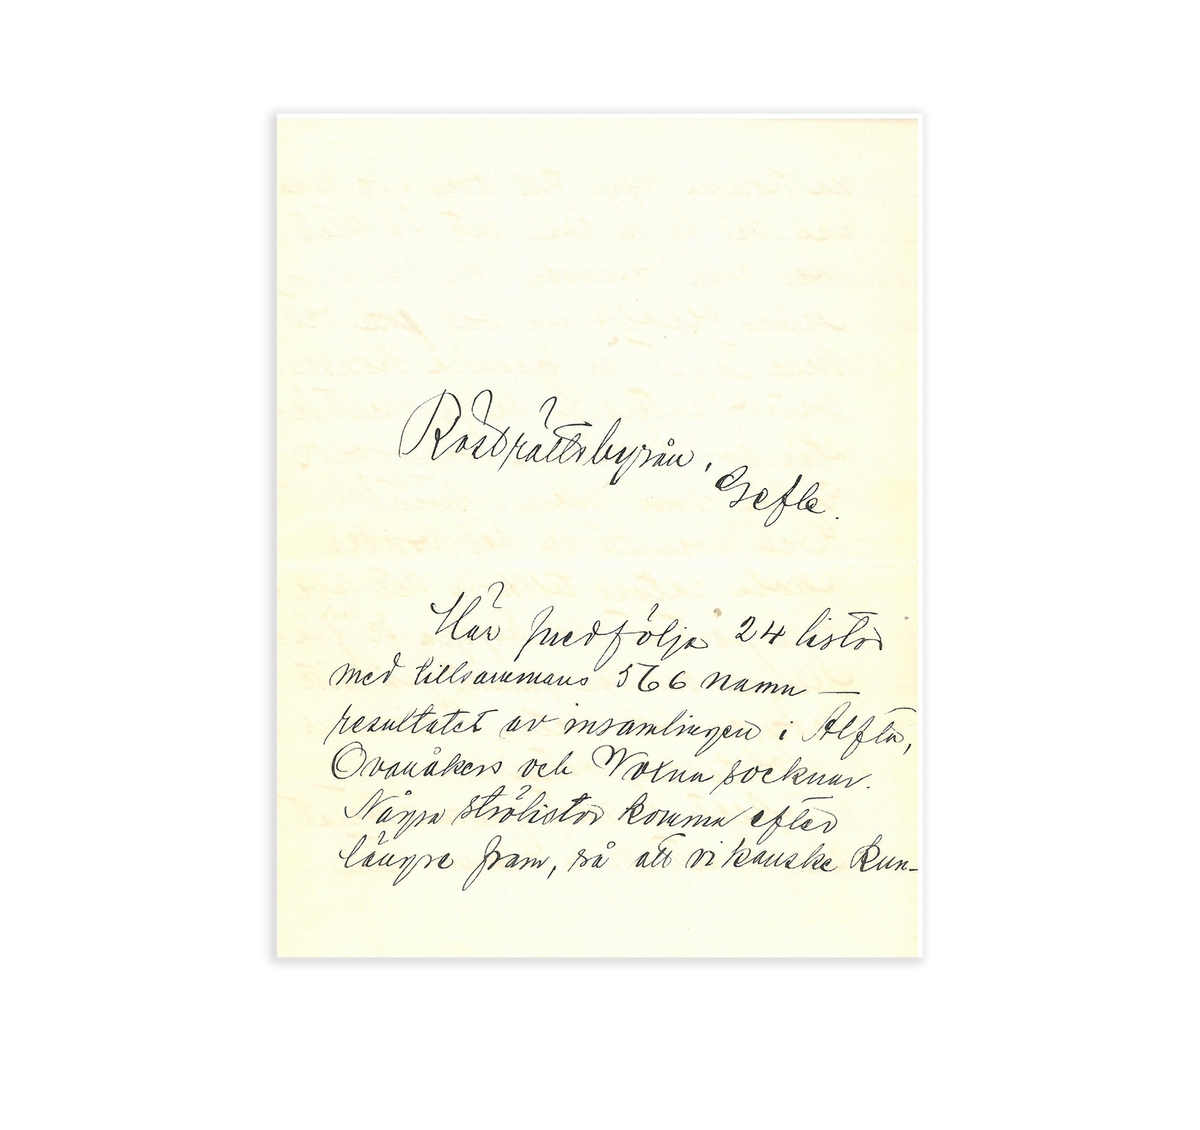 Rösträttsbyrån,
Gefle.
Här medfölja 24 listor
med tillsammans 566 namn —
resultatet av insamlingen i Alfta,
Ovanåkers och Voxna socknar.
Några strölistor komma efter
längre fram, så att vi kanske kun-